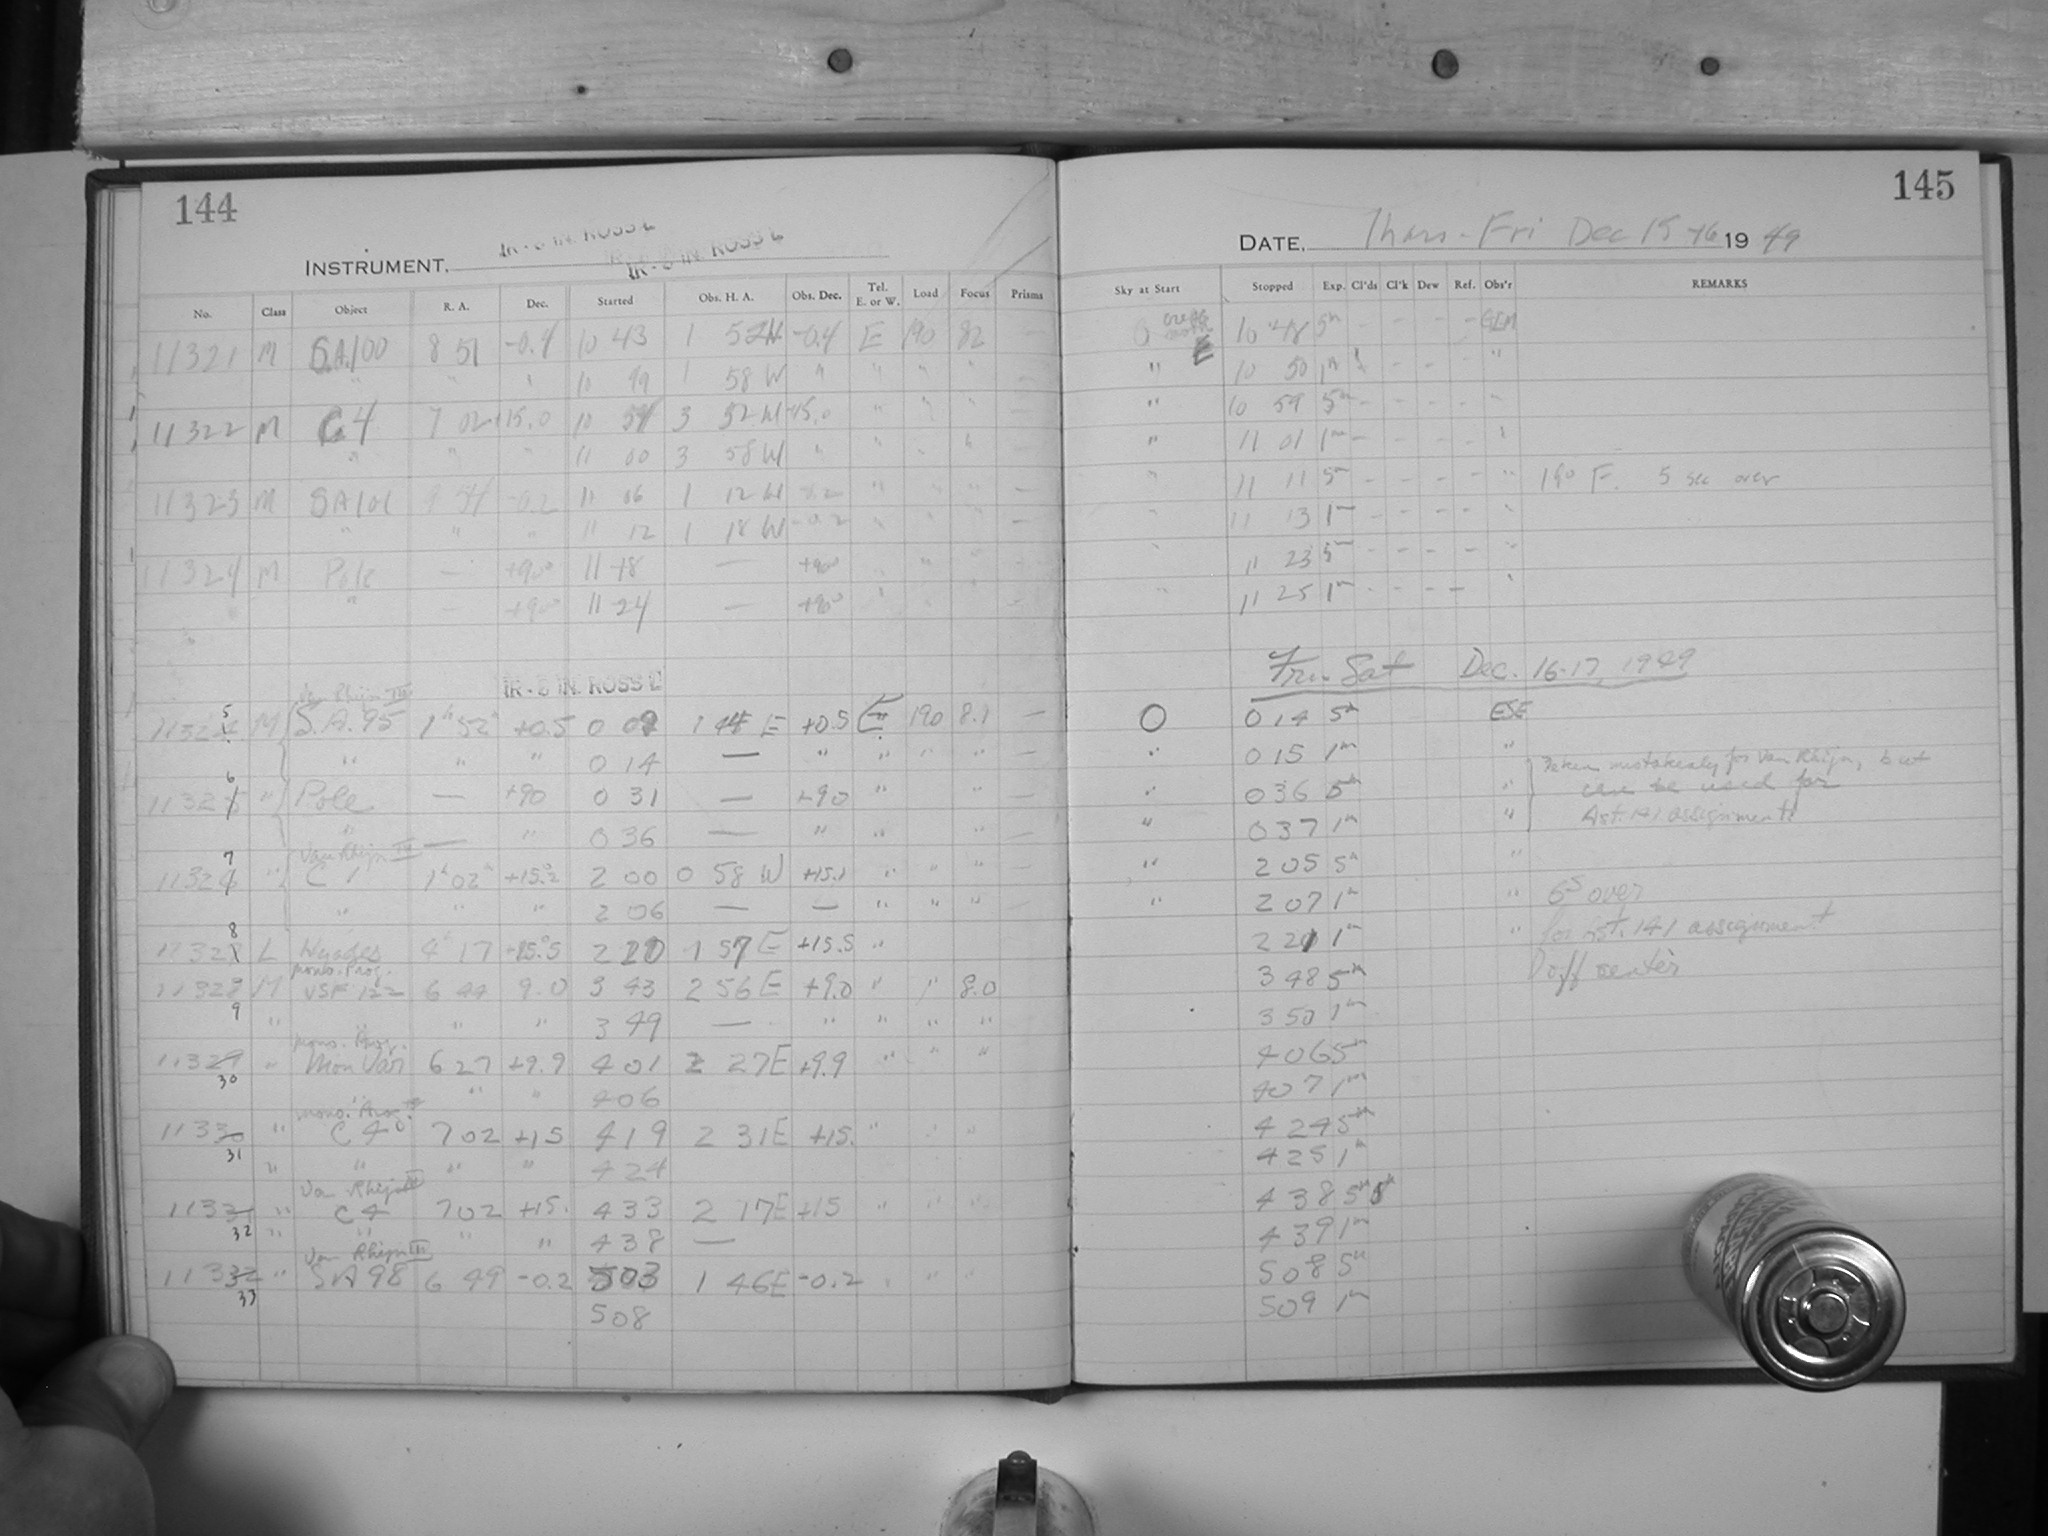 144
IR-5 IN. ROSS L
INSTRUMENT. IR-5 IN. ROSS L
No. Class Object R. A. Dec. Started Obs. H. A. Obs. Dec. Tel. E. or W. Load Focus Prisms
11321 M S.A.100 8 51 -0.4 10 43 1 52W -0.4 E 190 82 —
" " " 10 49 1 58 W " " " " —
11322 M C4 7 02 +15.0 10 54 3 52 W +15.0 " " " —
" " " 11 00 3 58 W " " " "
11323 M SA101 -0.2 11 06 1 12 W -0.2 " " " —
" " " 11 12 1 18 W -0.2 " " " —
11324 M Pole — +90° 11 18 — +90° " " " —
" — +90° 11 24 — +90° " —
IR-5 IN. ROSS L
Van Rhijn III
5
1132 M S.A. 95 1h 52m +0.5 0 09 1 44 E +0.5 E 190 8.1 —
" " " 0 14 — " " " " —
6
1132 " Pole — +90 0 31 — +90 " " —
" — " 0 36 — " " " —
Van Rhijn III
7
1132 " C 1 1h 02m +15.2 2 00 0 58 W +15.1 " " " —
" " " 2 06 — — " " " —
8
1132 L Hyades 4h 17 +15.5 2 20 1 57 E +15.5 "
mono. Prog.
1132 M VSF 122 6 44 9.0 3 43 2 56 E +9.0 " " 8.0
9 " " " " 3 49 — " " " "
mono. Prog.
11329 " Mon Var 6 27 +9.9 4 01 2 27E +9.9 " " "
30 " " " 4 06
mono. Prog.
11330 " C 4 7 02 +15 4 19 2 31E +15. " " "
31 " " " " 4 24
Van Rhijn III
1133 " C 4 7 02 +15. 4 33 2 17E +15 " " "
32 " " " " 4 38 —
Van Rhijn III
11332 " SA 98 6 49 -0.2 503 1 46E -0.2 " " "
33 508
145
DATE, Thurs - Fri Dec 15-16 19 49
Sky at Start Stopped Exp. Cl'ds Cl'k Dew Ref. Obs'r REMARKS
0 10 48 5m - - - - GEM
" 10 50 1m - - - "
" 10 59 5m - - - - "
" 11 01 1m - - - - "
" 11 11 5m - - - - " 190 F. 5 sec over
" 11 13 1m - - - - "
" 11 23 5m - - - - "
" 11 25 1m - - - - "
Fri-Sat Dec. 16-17, 1949
0 0 14 5m ESE
" 0 15 1m "
Taken mistakenly for Van Rhijn, but
" 0 36 5m " can be used for
" 0 37 1m " Ast. 141 assignment
" 2 05 5m "
" 2 07 1m " 6s over
2 21 1m " for Ast. 141 assignment
3 48 5m D off center
3 50 1m
4 06 5m
4 07 1m
4 24 5m
4 25 1m
4 38 5m
4 39 1m
5 08 5m
5 09 1m